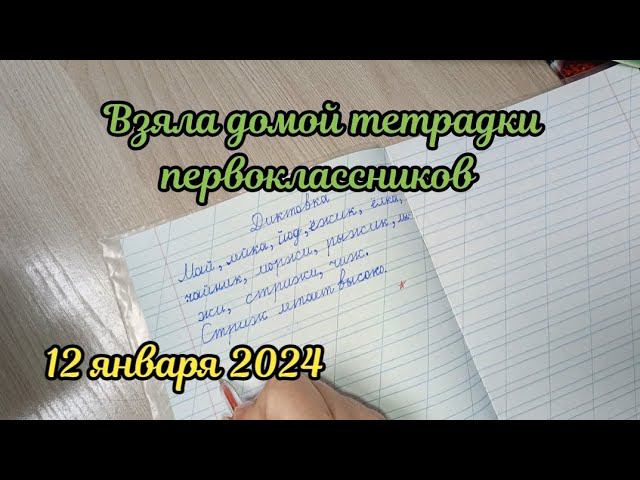 Взяла домой тетрадки
первоклассников
Диктовка
Май, майка, йод, ёжик, ёлка,
чайник, моржи, рыжик, лы-
жи, стрижи, чиж.
Стриж летает высоко.
12 января 2024